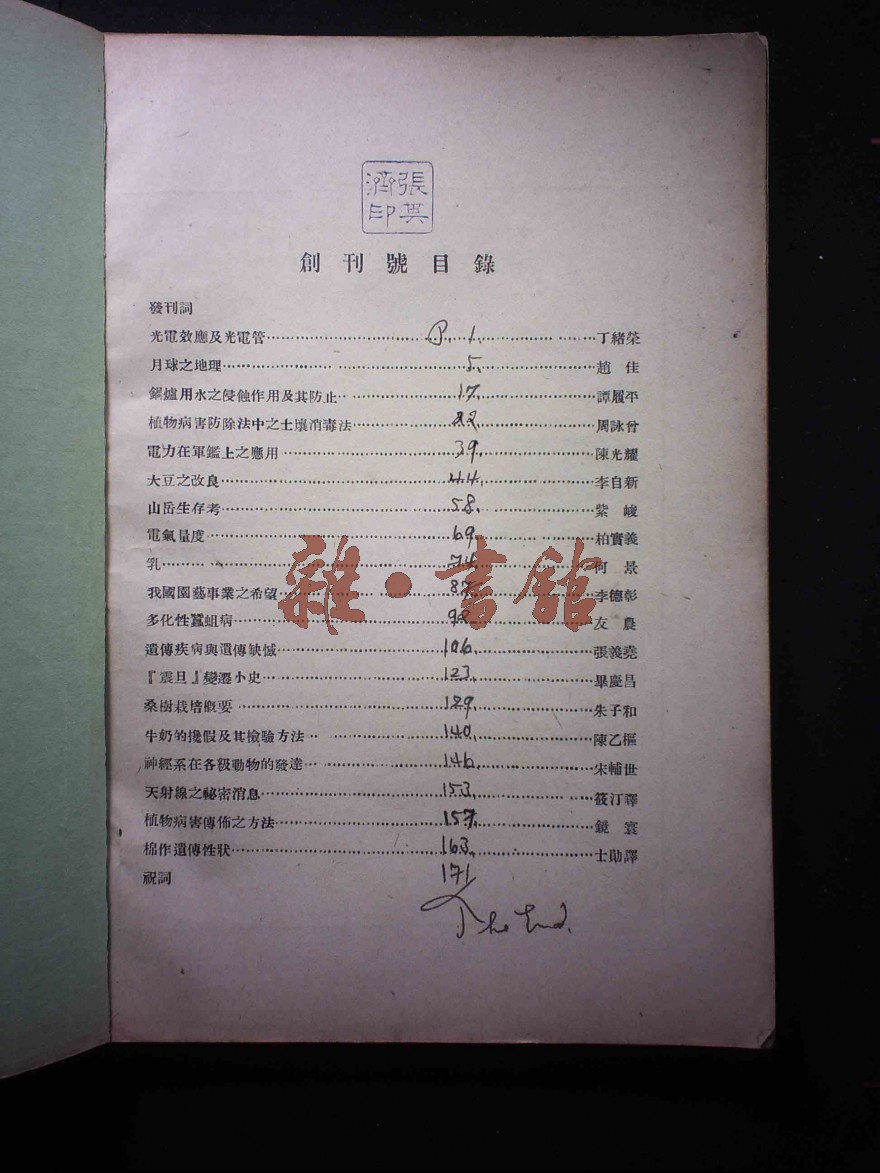 張英
濟印
創刊號目錄
發刊詞
光電效應及光電管 P. 1. 丁緒榮
月球之地理 5. 趙佳
鍋爐用水之侵蝕作用及其防止 17. 譚履平
植物病害防除法中之土壤消毒法 22. 周詠曾
電力在軍鑑上之應用 39. 陳光耀
大豆之改良 44. 李自新
山岳生存考 58. 紫峻
電氣量度 69. 柏實義
乳 74. 何景
我國園藝事業之希望 87. 李德彰
多化性蠶蛆病 98. 友農
遺傳疾病與遺傳缺憾 106. 張義堯
『震旦』變遷小史 123. 畢慶昌
桑樹栽培概要 129. 朱子和
牛奶的攙假及其檢驗方法 140. 陳乙樞
神經系在各級動物的發達 146. 宋輔世
天射線之祕密消息 153. 筱汀譯
植物病害傳佈之方法 157. 鏡寰
棉作遺傳性狀 163. 士勛譯
祝詞 171
The End.
雜·書館